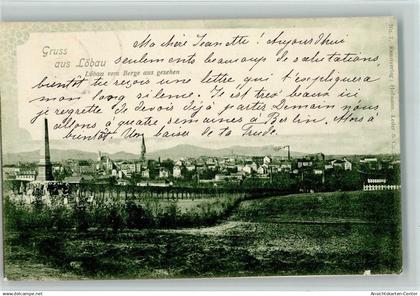 Gruss
aus Löbau
Löbau vom Berge aus gesehen
Ma chère Jeanette! Aujourd'hui
seulement beaucoup de salutations,
bientôt tu reçois une lettre qui t'expliquera
mon long silence. Il est très beau ici
je regrette de devois déjà partir. Demain nous
allons à quatre semaines à Berlin. Alors à
bientôt. Un baiser de ta Trude.